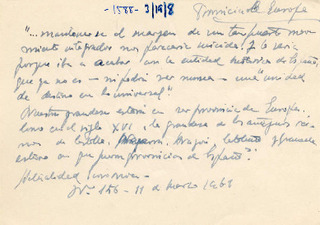 1588 - 3/19/8
Provincia de Europa
"...mantenerse al margen de un tan fuerte movi-
miento integrador nos parecería suicida. Y lo sería
porque iba a acabar con la entidad histórica de España,
que ya no es - ni podrá ser nunca - una "unidad
de destino en lo universal".
Nuestra grandeza estará en ser provincia de Europa.
como en el siglo XVI, la grandeza de los antiguos rei-
nos de Castilla, Navarra, Aragón, Cataluña y Granada
estuvo en que fueron provincias de España".
Actualidad
Nº 156 - 11 de Marzo 1963